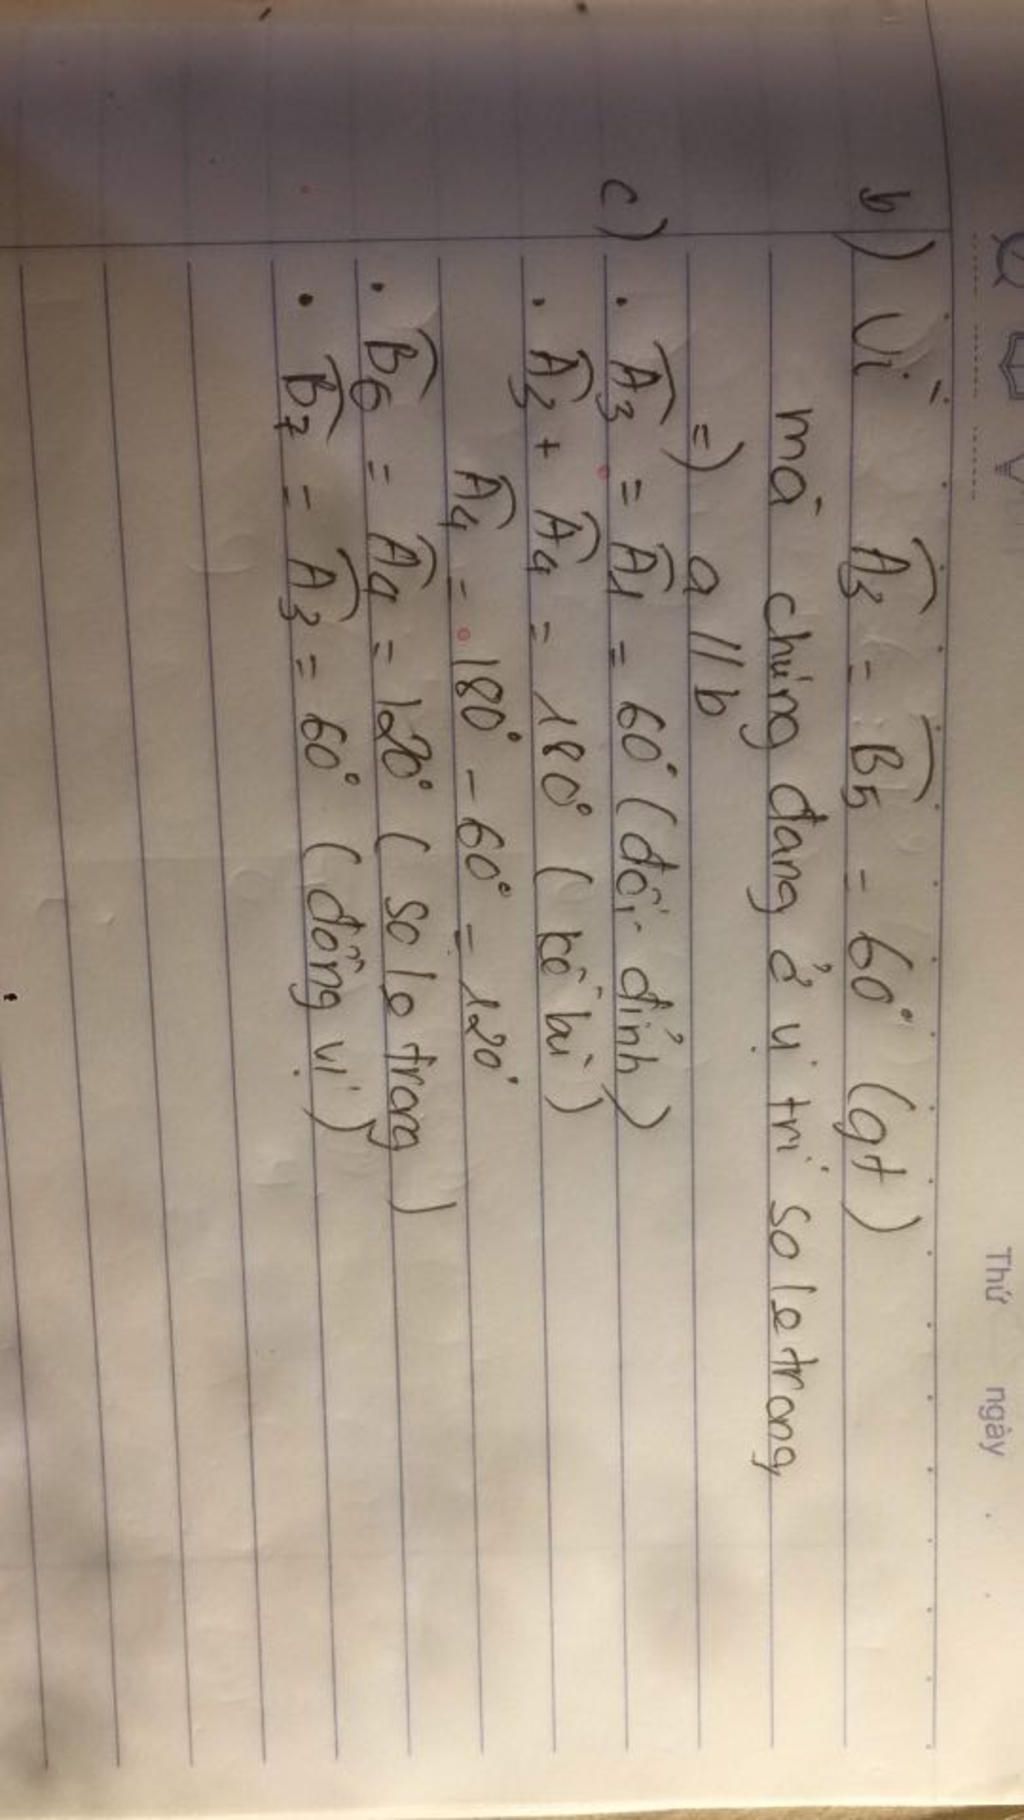 Thứ ngày
b) Vì \(\widehat{A_3} = \widehat{B_5} = 60°\) (gt)
mà chúng đang ở vị trí so le trong
=> a // b
c) . \(\widehat{A_3} = \widehat{A_1} = 60°\) (đối đỉnh)
. \(\widehat{A_3} + \widehat{A_4} = 180°\) (kề bù)
\(\widehat{A_4} = 180° - 60° = 120°\)
. \(\widehat{B_6} = \widehat{A_4} = 120°\) (so le trong)
. \(\widehat{B_7} = \widehat{A_3} = 60°\) (đồng vị)